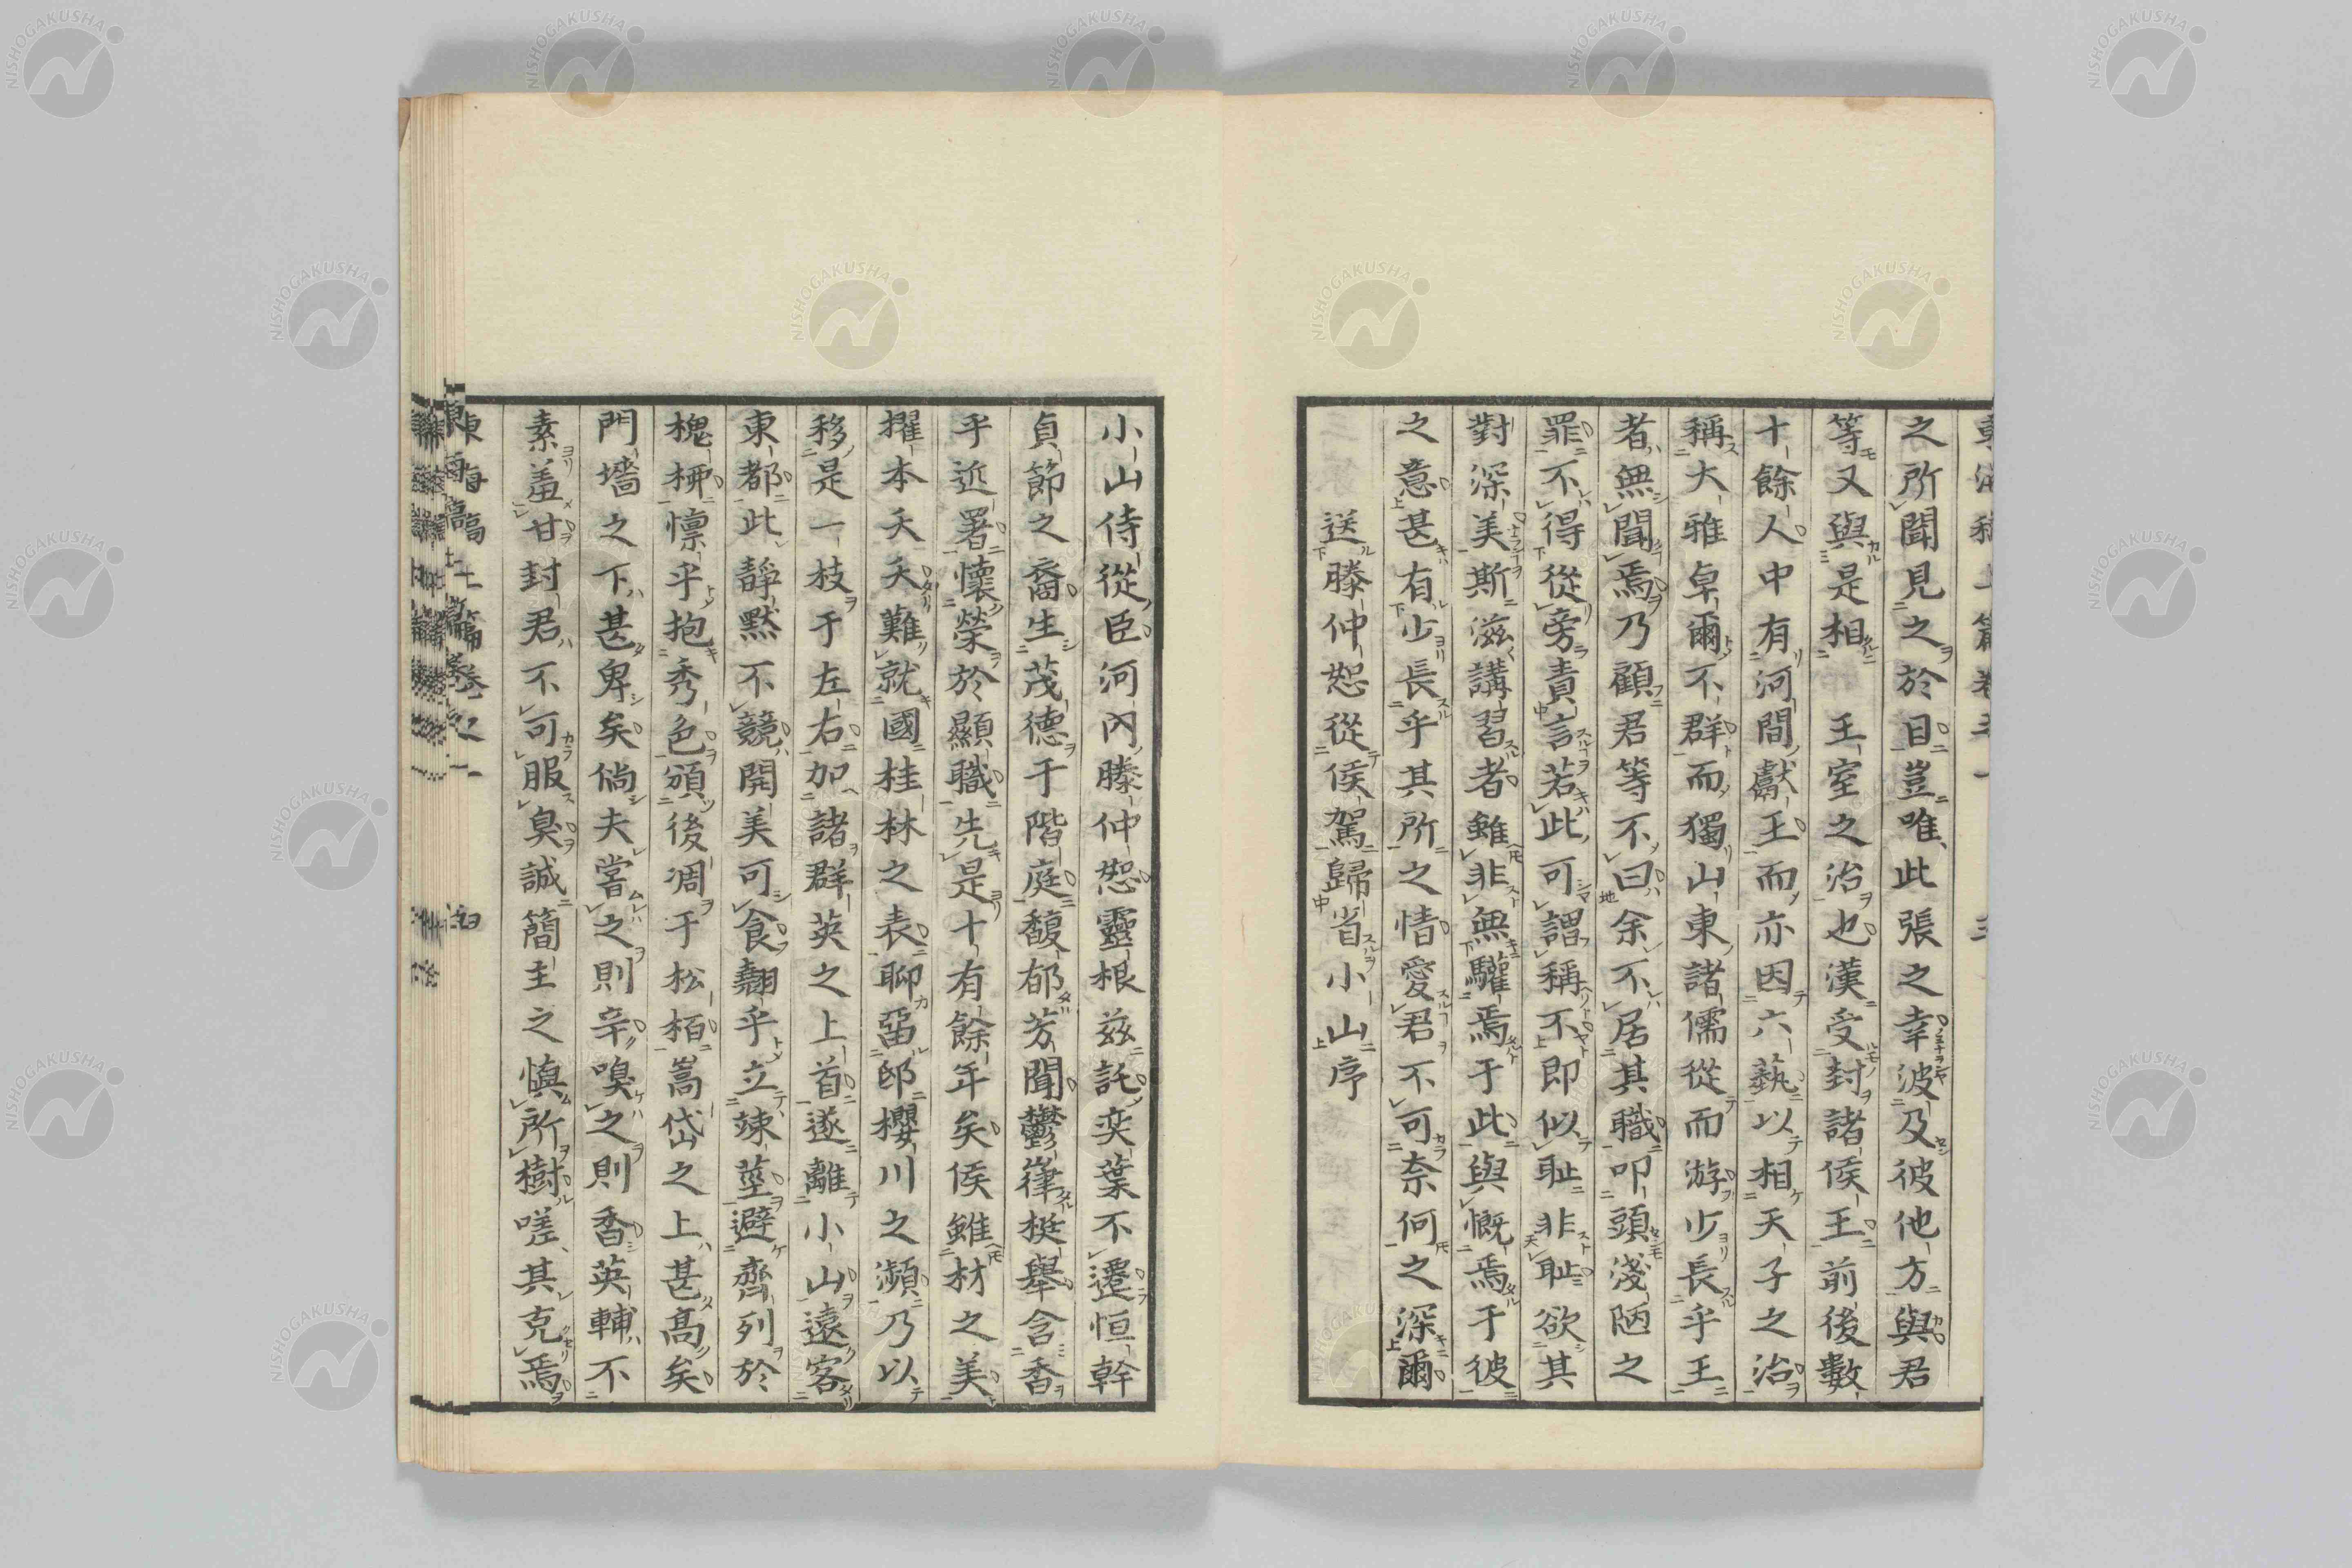 之所聞見之於目豈唯此張之幸波及彼他方與君
等又與是相 王室之治也漢受封諸侯王前後數
十餘人中有河間獻王而亦因六藝以相天子之治
稱大雅卓爾不群而獨山東諸儒從而游少長乎王
者無聞焉乃顧君等不曰余不居其職叩頭淺陋之
罪不得從旁責言若此可謂稱不即似耻非耻欲其
對深美斯滋講習者雖非無驩焉于此與慨焉于彼
之意甚有少長乎其所之情愛君不可奈何之深爾
送滕仲恕從侯駕歸省小山序
小山侍從臣河內滕仲恕靈根兹託奕葉不遷恒幹
貞節之裔生茂德于階庭馥郁芳聞鬱嵂梃舉含香
乎近署懷榮於顯職先是十有餘年矣侯雖材之美
擢本夭夭難就國桂林之表聊留邸櫻川之瀕乃以
移是一枝于左右加諸群英之上首遂離小山遠客
東都此靜默不競開美可食翹乎立竦莖避齊列於
槐栁懍乎抱秀色頒後凋于松栢嵩岱之上甚髙矣
門墻之下甚卑矣倘夫嘗之則辛嗅之則香英輔不
素羞甘封君不可服臭誠簡主之愼所樹嗟其克焉
東海高土篇卷之一 四